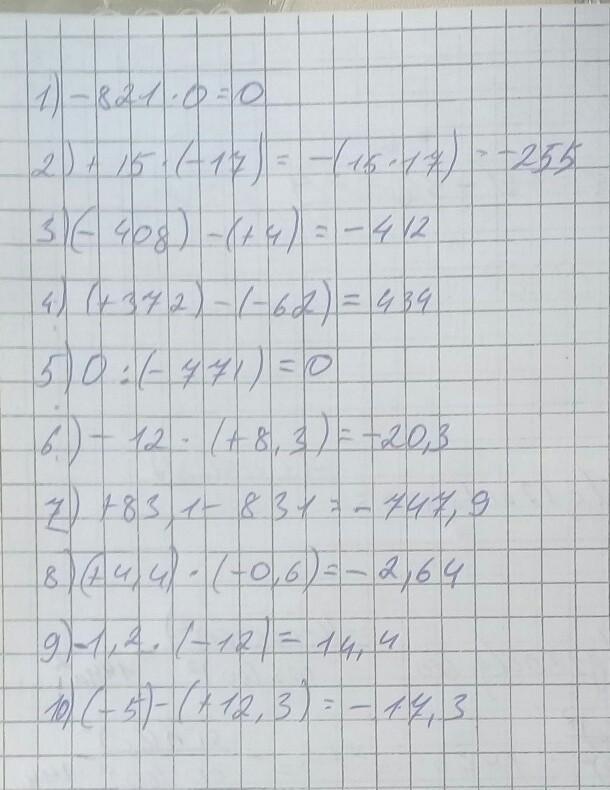 1) - 821 · 0 = 0
2) + 15 · (-17) = -(15 · 17) = -255
3) (- 408) - (+4) = - 412
4) (+372) - (-62) = 434
5) 0 : (- 771) = 0
6) - 12 - (+8,3) = -20,3
7) +83,1 - 831 = - 747,9
8) (+4,4) · (-0,6) = - 2,64
9) -1,2 · (-12) = 14,4
10) (-5) - (+12,3) = - 17,3